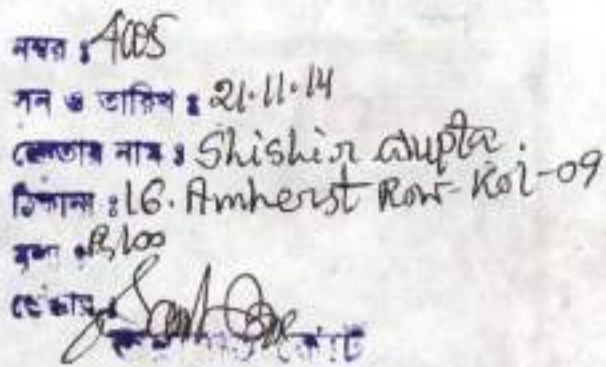 নম্বর : 4005
সন ও তারিখ : 21.11.14
ক্রেতার নাম : Shishir Gupta.
ঠিকানা : 16. Amherst Row-Kol-09
মূল্য : Rs 100
ভেন্ডার :